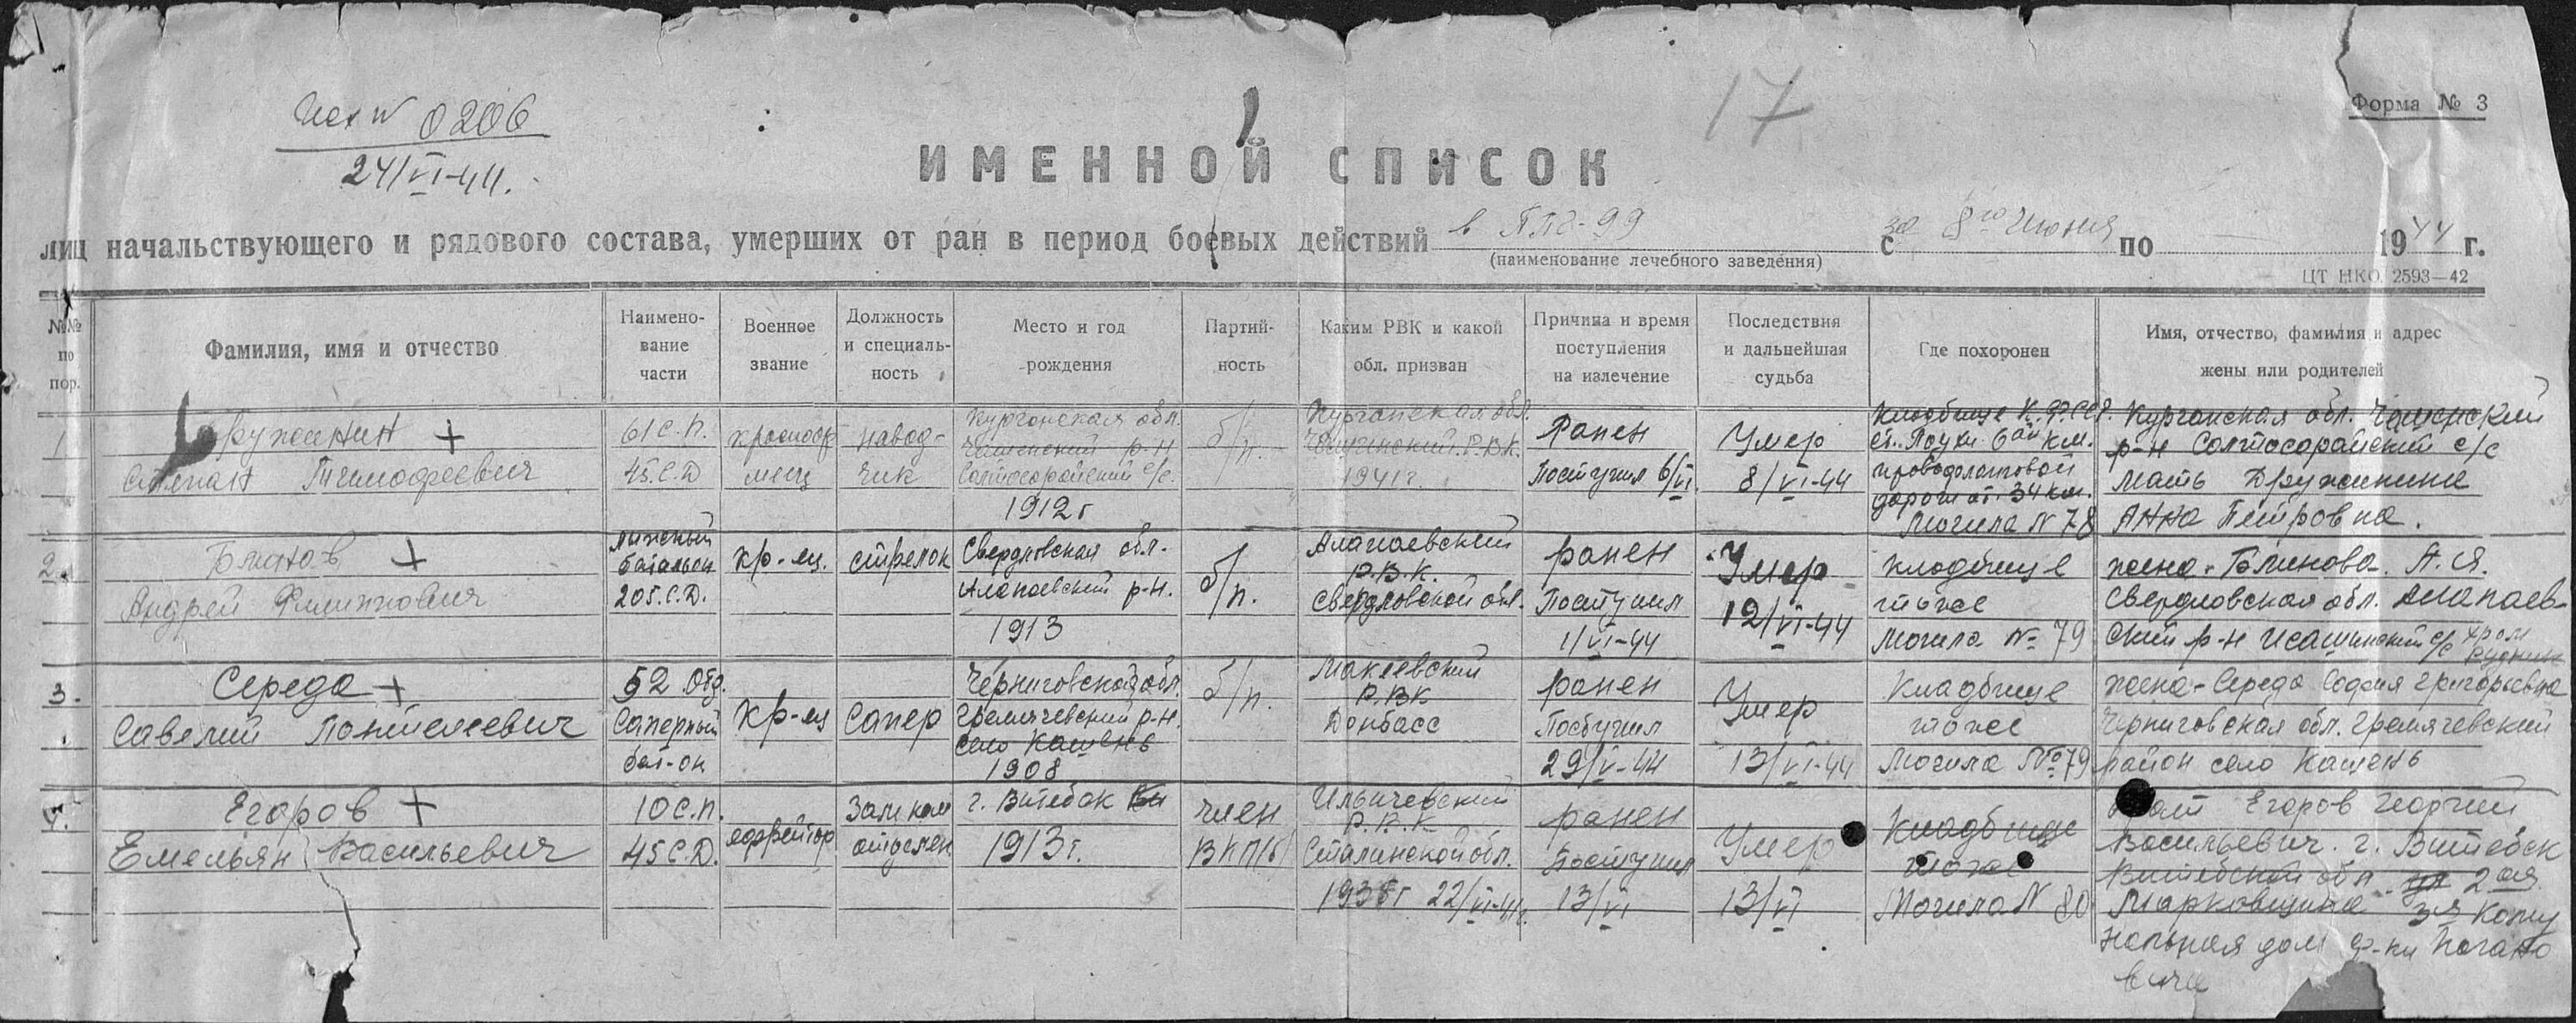 Исх N 0206
24/VI-44.
17
Форма № 3
ИМЕННОЙ СПИСОК
лиц начальствующего и рядового состава, умерших от ран в период боевых действий в ППГ-99 с за 8го Июня по — 1944 г.
(наименование лечебного заведения)
ЦТ НКО 2593—42
№№ по пор.
Фамилия, имя и отчество
Наимено-
вание
части
Военное
звание
Должность
и специаль-
ность
Место и год
рождения
Партий-
ность
Каким РВК и какой
обл. призван
Причина и время
поступления
на излечение
Последствия
и дальнейшая
судьба
Где похоронен
Имя, отчество, фамилия и адрес
жены или родителей
1
Дружинин +
Степан Тимофеевич
61 с.п.
45 с.д
красноар
меец
навод-
чик
Курганская обл.
Чашинский р-н
Солтосарайский с/с.
1912 г
б/п.
Курганская обл.
Чашинский Р.В.К.
1941 г.
Ранен
Поступил 6/VI.
Умер
8/VI-44
Кладбище К.Ф.ССР.
ст. Лоухи 6ой км.
дороги от 34 км.
Могила N 78
Курганская обл. Чашинский
р-н Солтосарайский с/с
Мать Дружинина
Анна Петровна.
2.
Блинов +
Андрей Филиппович
лыжный
батальон
205 с.д.
кр-ец.
стрелок
Свердловская обл.
Алапаевский р-н.
1913
б/п.
Алапаевский
Р.В.К.
Свердловской обл.
ранен
Поступил
1/VI-44
Умер
12/VI-44
кладбище
тоже
Могила № 79
жена - Блинова. А.Я.
Свердловская обл. Алапаев-
ский р-н с/с хром
рудник
3.
Середа +
Савелий Пантелеевич
52 Отд.
Саперный
бат-он
кр-ец
Сапер
Черниговской обл.
Гремячевский р-н.
село Кашень
1908
б/п.
Макеевский
Р.В.К
Донбасс
ранен
Поступил
29/V-44
Умер
13/VI-44
Кладбище
тоже
Могила №79
жена - Середа София Григорьевна
Черниговская обл. Гремячевский
район село Кашень
4.
Егоров +
Емельян Васильевич
10 с.п.
45 с.д.
ефрейтор
Зам ком
отделен
г. Витебск
1913 г.
член
ВКП/б/
Ильичевский
Р.В.К
Сталинской обл.
1938 г 22/VI-41г.
ранен
Поступил
13/VI
Умер
13/VI
Кладбище
тоже
Могила N 80
брат Егоров Георгий
Васильевич. г. Витебск
Витебской обл 2ая
Марковщина 33 Комму
нальная дом